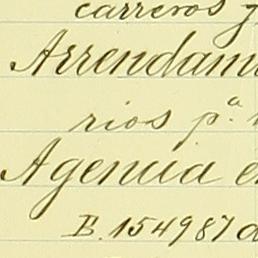 carreros y
Arrendam
rios p.ª
Agencia e
B. 154987 d